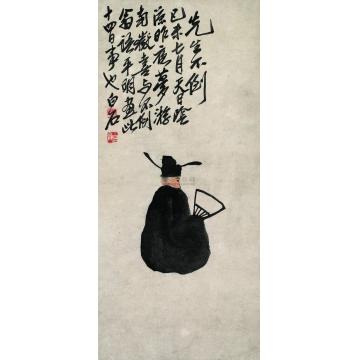 先生不倒
己未七月天日陰
涼昨夜夢游
南嶽喜与不倒
翁語平明画此
十四日事也白石